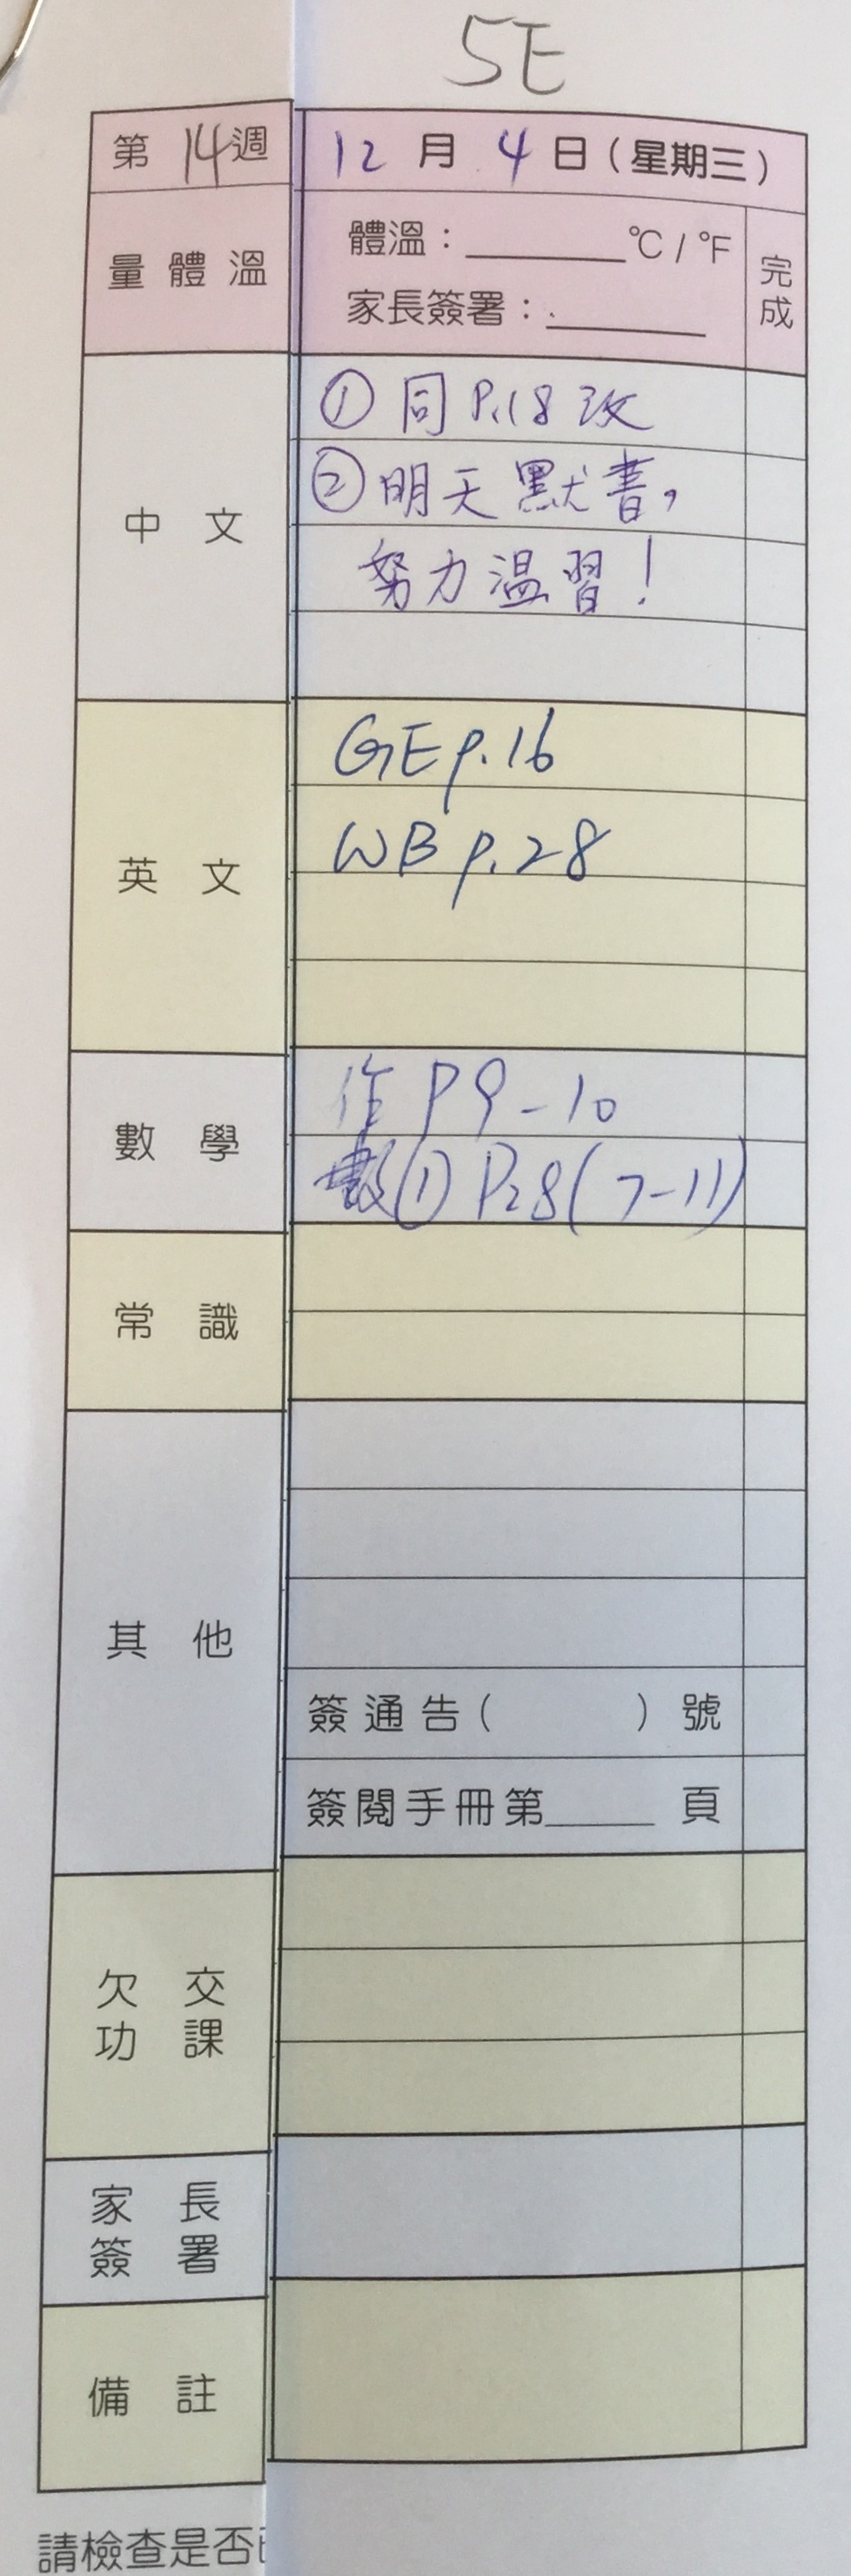 5E
第 14 週
12 月 4 日 (星期三)
量體溫
體溫：______°C / °F
家長簽署：______
完成
中文
① 同 P.18 改
② 明天默書，
努力温習！
英文
GE p.16
WB p.28
數學
作 P9-10
數① P28(7-11)
常識
其他
簽通告( ) 號
簽閱手冊第_____ 頁
欠交
功課
家長
簽署
備註
請檢查是否